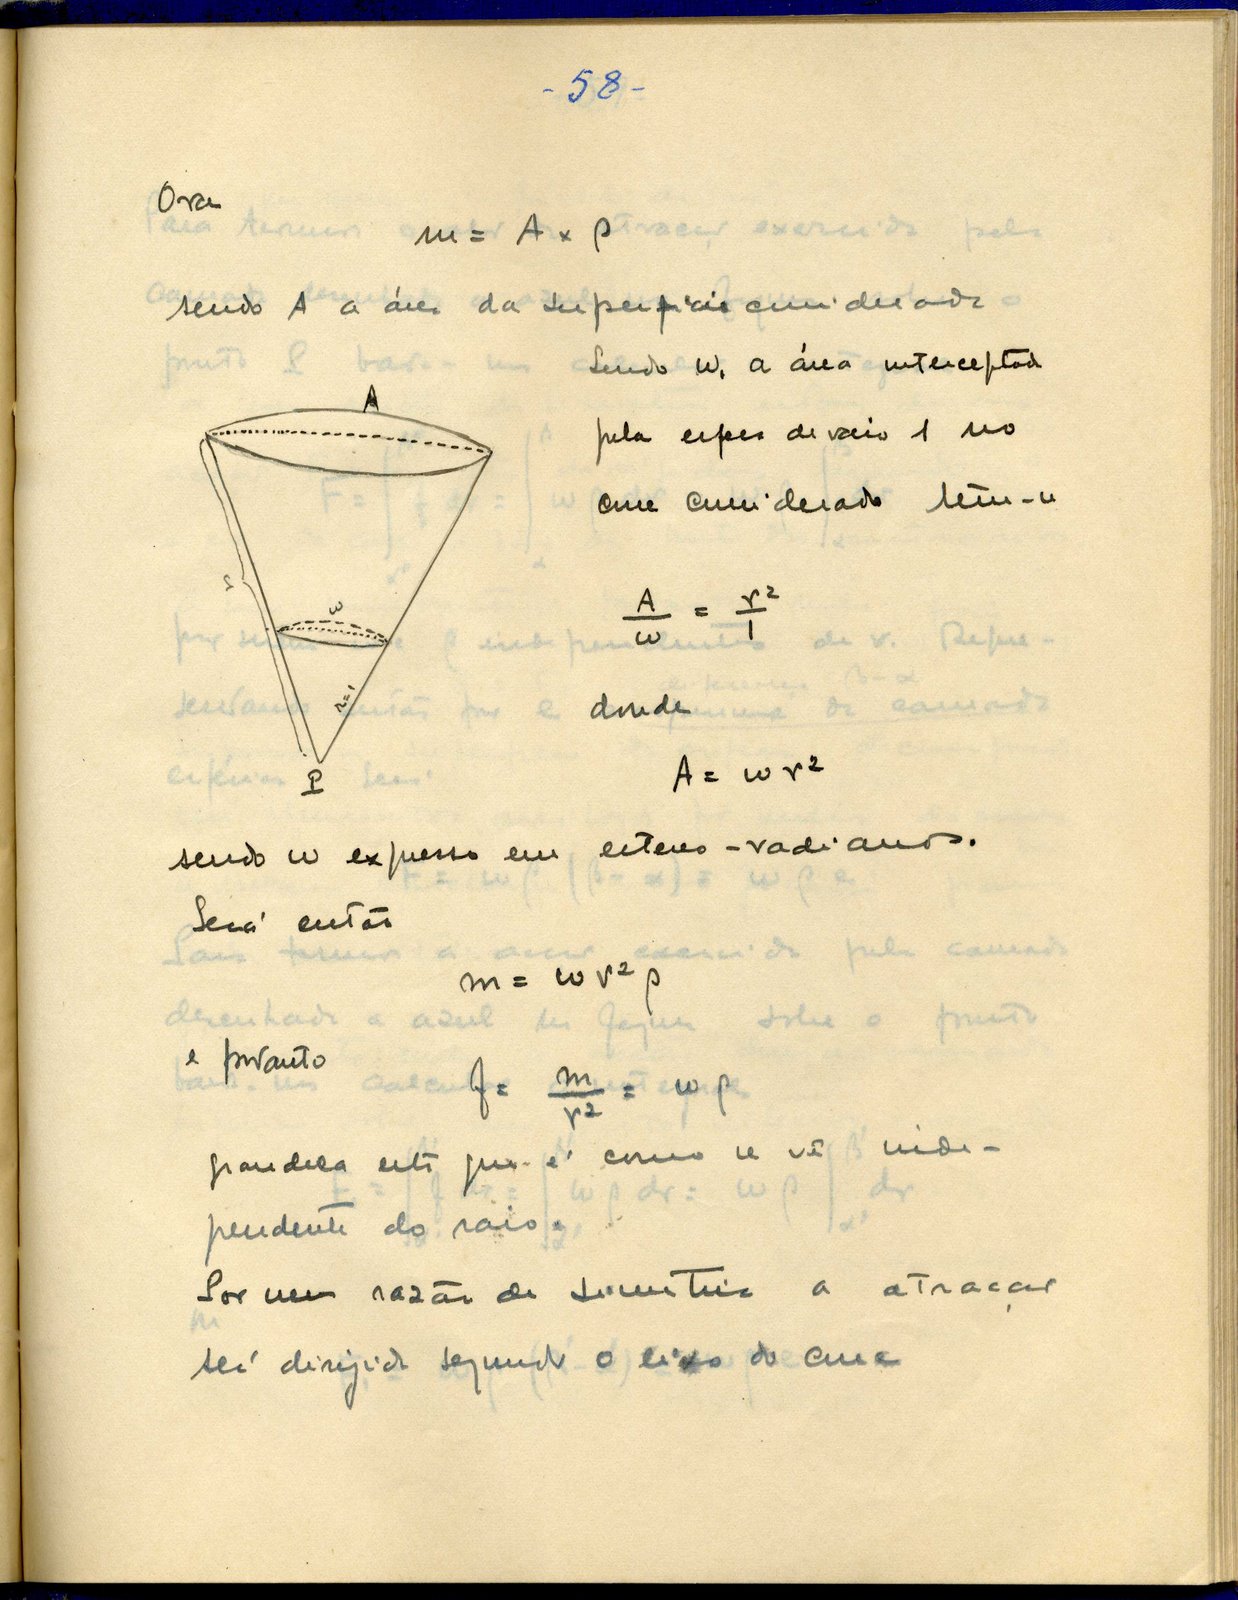 - 58 -
Ora
m = A × ρ
sendo A a área da superficie considerada
Sendo w, a área interceptada
pela esfera de raio 1 no
cone considerado têm-se
A
r
w
r=1
P
A/w = r²/1
donde
A = w r²
sendo w expresso em estereo-radianos.
Será então
m = w r² ρ
e portanto
f = m/r² = w ρ
grandeza esta que é como se vê inde-
pendente do raio.
Por uma razão de simetria a atracção
será dirigida segundo o eixo do cone